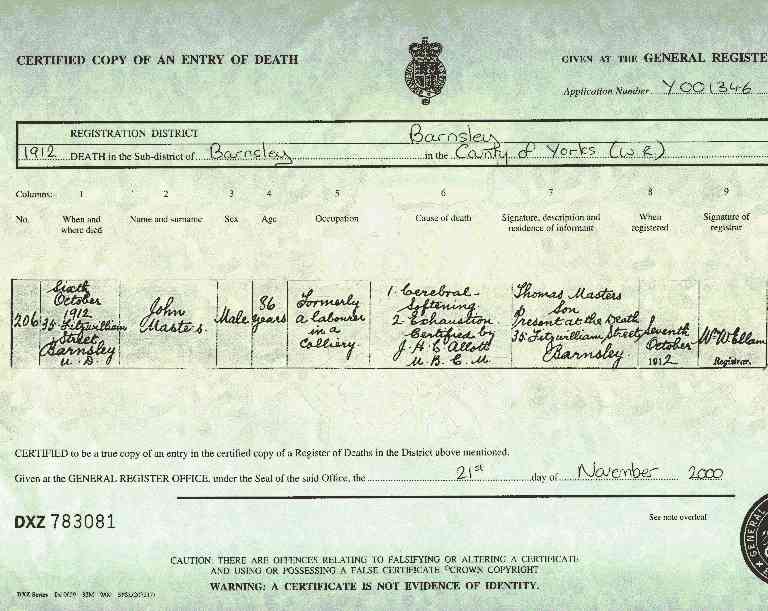 CERTIFIED COPY OF AN ENTRY OF DEATH
GIVEN AT THE GENERAL REGISTE
Application Number Y001346
REGISTRATION DISTRICT Barnsley
1912 DEATH in the Sub-district of Barnsley in the County of Yorks (W R)
Columns: 1 2 3 4 5 6 7 8 9
No. When and where died Name and surname Sex Age Occupation Cause of death Signature, description and residence of informant When registered Signature of registrar
206
Sixth
October
1912
35 Fitzwilliam
Street
Barnsley
U.D.
John
Masters
Male
86
years
Formerly
a labourer
in a
Colliery
1. Cerebral
Softening
2 Exhaustion
Certified by
J. H. C. Allott
M.B. C.M
Thomas Masters
Son
Present at the Death
35 Fitzwilliam Street
Barnsley
Seventh
October
1912
Registrar.
CERTIFIED to be a true copy of an entry in the certified copy of a Register of Deaths in the District above mentioned.
Given at the GENERAL REGISTER OFFICE, under the Seal of the said Office, the 21st day of November 2000
DXZ 783081
See note overleaf
GENERAL
CAUTION: THERE ARE OFFENCES RELATING TO FALSIFYING OR ALTERING A CERTIFICATE
AND USING OR POSSESSING A FALSE CERTIFICATE ©CROWN COPYRIGHT
WARNING: A CERTIFICATE IS NOT EVIDENCE OF IDENTITY.
DXZ Series